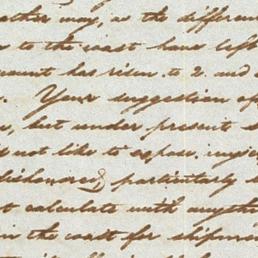 may, as the differen
to the coast have left
amount has risen to 2. and
Your suggestion of
, but under present s
not like to expose
dishonored, particularly s
t calculate with anythi
the coast for shipme